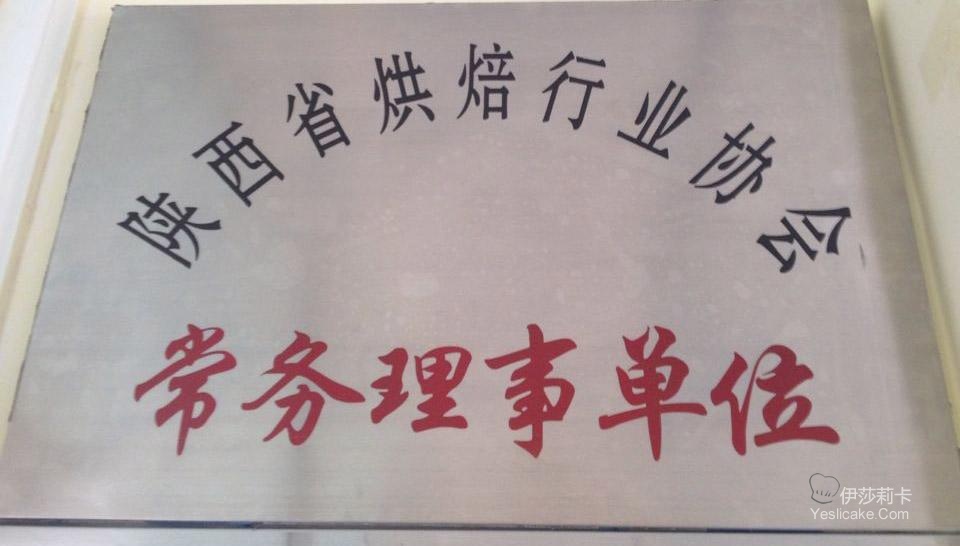 陕西省烘焙行业协会
常务理事单位
伊莎莉卡
Yeslicake.Com